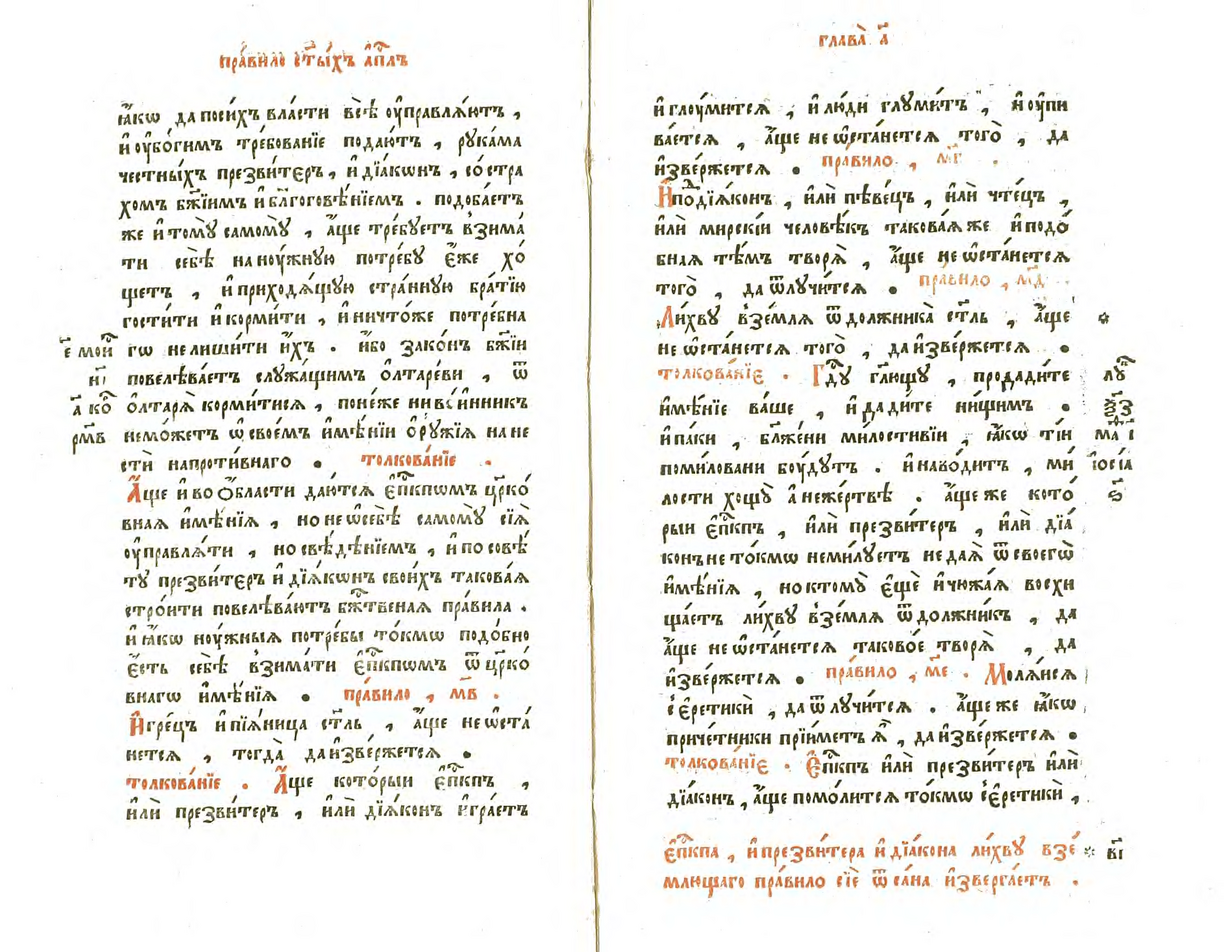 пра́вило ст҃ы́хъ а҆пл҃ъ
ꙗ҆́кѡ да поси́хъ вла́сти всѐ ѹ҆правлѧ́ютъ ,
и҆ ѹ҆бо́гимъ тре́бованїе подаю́тъ , рꙋка́ма
честны́хъ презви́теръ , и҆ дїа́конъ , со́ стра
хомъ бж҃їимъ и҆ бл҃гогове́нїемъ . подоба́етъ
же и҆ томꙋ̀ самомꙋ̀ , а҆́ще тре́бꙋетъ взима́
ти себѣ̀ на нѹ́жнꙋю потре́бꙋ є҆́же хо́
щетъ , и҆ приходѧ́щꙋю стра́ннꙋю бра́тїю
гости́ти и҆ корми́ти , и҆ ничто́же потре́бна
гѡ не лиши́ти и҆́хъ . и҆́бо зако́нъ бж҃їи
повелѣва́етъ слꙋжа́щимъ о҆лтаре́ви , ѿ
о҆лтарѧ̀ корми́тисѧ , поне́же ни во́инникъ
не мо́жетъ ѡ҆ свое́мъ и҆мѣ́нїи о҆рꙋ́жїѧ на не
стѝ напроти́внаго . толкова́нїе .
А҆́ще и҆ во о҆́бласти даю́тсѧ є҆пⷭ҇кпѡмъ цр҃ко́
внаѧ и҆мѣ́нїѧ , но не ѡ҆ себѣ̀ самомꙋ̀ сїѧ̀
ѹ҆правлѧ́ти , но свѣ́дѣнїемъ , и҆ по совѣ́
тꙋ презви́теръ и҆ дїа́конъ свои́хъ такова́ѧ
стро́ити повелѣва́ютъ бжⷭ҇твенаѧ пра́вила .
и҆ ꙗ҆́кѡ нѹ́жныѧ потре́бы то́кмѡ подо́бно
є҆́сть себѣ̀ взима́ти є҆пⷭ҇кпѡмъ ѿ цр҃ко́
внагѡ и҆мѣ́нїѧ . пра́вило , м҃в .
И҆гре́цъ и҆ пїѧ́ница ст҃ль , а҆́ще не ѡ҆ста́
нетсѧ , тогда̀ да и҆зве́ржетсѧ .
толкова́нїе . А҆́ще кото́рыи є҆пⷭ҇кпъ ,
и҆лѝ презви́теръ , и҆лѝ дїа́конъ и҆гра́етъ
глава̀ а҃
и҆ глѹ́митсѧ , и҆ лю́ди глꙋми́тъ , и҆ ѹ҆пи
ва́етсѧ , а҆́ще не ѡ҆ста́нетсѧ того̀ , да
и҆зве́ржетсѧ . пра́вило , м҃г .
И҆подїа́конъ , и҆лѝ пѣве́цъ , и҆лѝ чте́цъ ,
и҆лѝ мирскі́и человѣ́къ такова́ѧ же и҆ подо́
бнаѧ тѣ́мъ творѧ̀ , а҆́ще не ѡ҆ста́нетсѧ
того̀ , да ѿлꙋчи́тсѧ . пра́вило , м҃д .
Ли́хвꙋ взе́млѧ ѿ должника̀ ст҃ль , а҆́ще
не ѡ҆ста́нетсѧ того̀ , да и҆зве́ржетсѧ .
толкова́нїе . Гдⷭ҇ꙋ гл҃ющꙋ , продади́те
и҆мѣ́нїе ва́ше , и҆ дади́те ни́щимъ .
и҆ па́ки , бл҃же́ни ми́лостивїи , ꙗ҆́кѡ ті́и
поми́ловани бѹ́дꙋтъ . и҆ наво́дитъ , ми́
лости хощꙋ̀ а҆ не же́ртвѣ . а҆́ще же кото́
рыи є҆пⷭ҇кпъ , и҆лѝ презви́теръ , и҆лѝ дїа́
конъ не то́кмѡ не ми́лꙋетъ не даѧ̀ ѿ своегѡ̀
и҆мѣ́нїѧ , но к томꙋ̀ є҆щѐ и҆ чюжа́ѧ восхи
ща́етъ ли́хвꙋ взе́млѧ ѿ должни́къ , да
а҆́ще не ѡ҆ста́нетсѧ таково́е творѧ̀ , да
и҆зве́ржетсѧ . пра́вило , м҃е . Молѧ́исѧ
с є҆ретикѝ , да ѿлꙋчи́тсѧ . а҆́ще же ꙗ҆́кѡ
приче́тники прїи́метъ ѧ҆̀ , да и҆зве́ржетсѧ .
толкова́нїе . Є҆пⷭ҇кпъ и҆лѝ презви́теръ и҆лѝ
дїа́конъ , а҆́ще помо́литсѧ то́кмѡ с є҆ретикѝ ,
є҆пⷭ҇кпа , и҆ презви́тера и҆ дїа́кона ли́хвꙋ взе́
млющаго пра́вило сїѐ ѿ са́на и҆зверга́етъ .
* в҃і